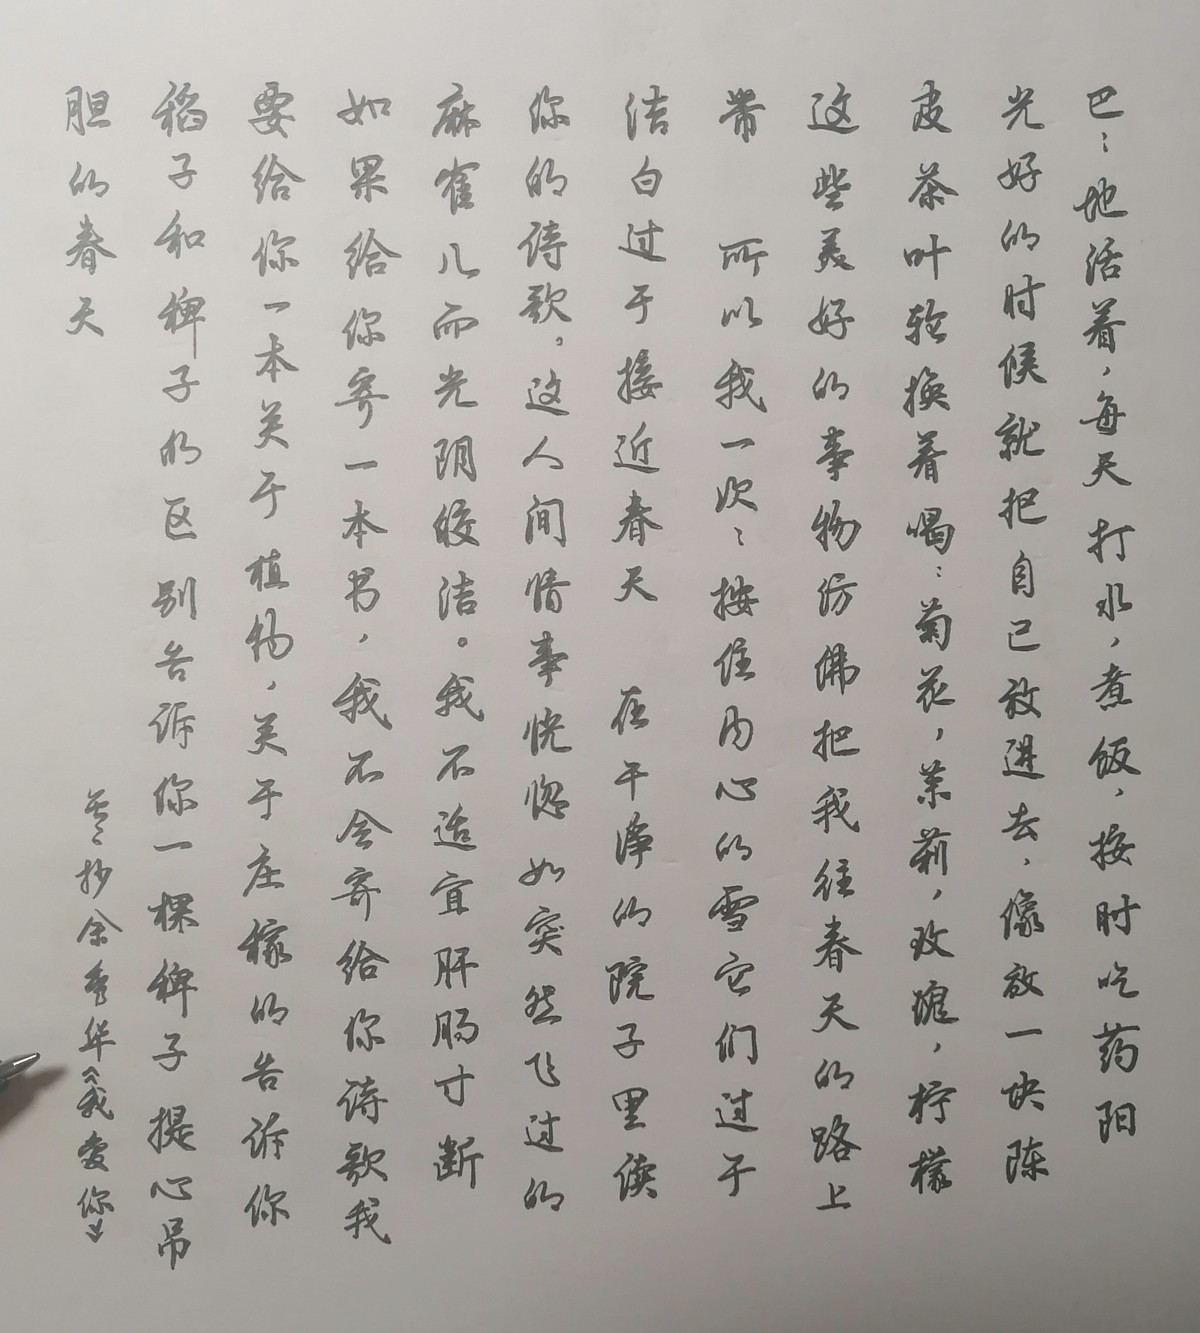 巴:地活着，每天打水，煮饭，按时吃药阳
光好的时候就把自己放进去，像放一块陈
皮茶叶轮换着喝:菊花，茉莉，玫瑰，柠檬
这些美好的事物仿佛把我往春天的路上
带 所以我一次:按住内心的雪它们过于
洁白过于接近春天 在干净的院子里读
你的诗歌，这人间情事恍惚如突然飞过的
麻雀儿而光阴皎洁。我不适宜肝肠寸断
如果给你寄一本书，我不会寄给你诗歌我
要给你一本关于植物，关于庄稼的告诉你
稻子和稗子的区别告诉你一棵稗子提心吊
胆的春天
抄余秀华《我爱你》